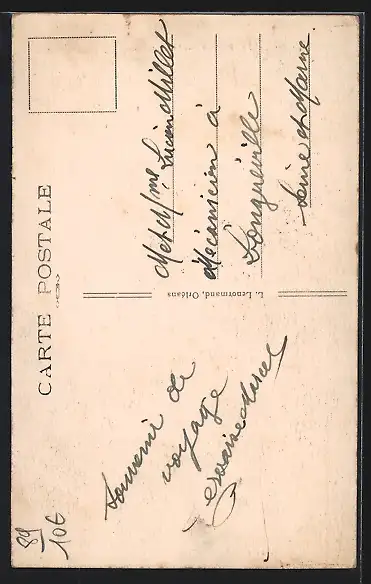 CARTE POSTALE
Souvenir de
voyage
M et Mme Lucien Millet
Mécanicien à
Longueville
Seine et Marne
L. Lenormand, Orléans
89
106